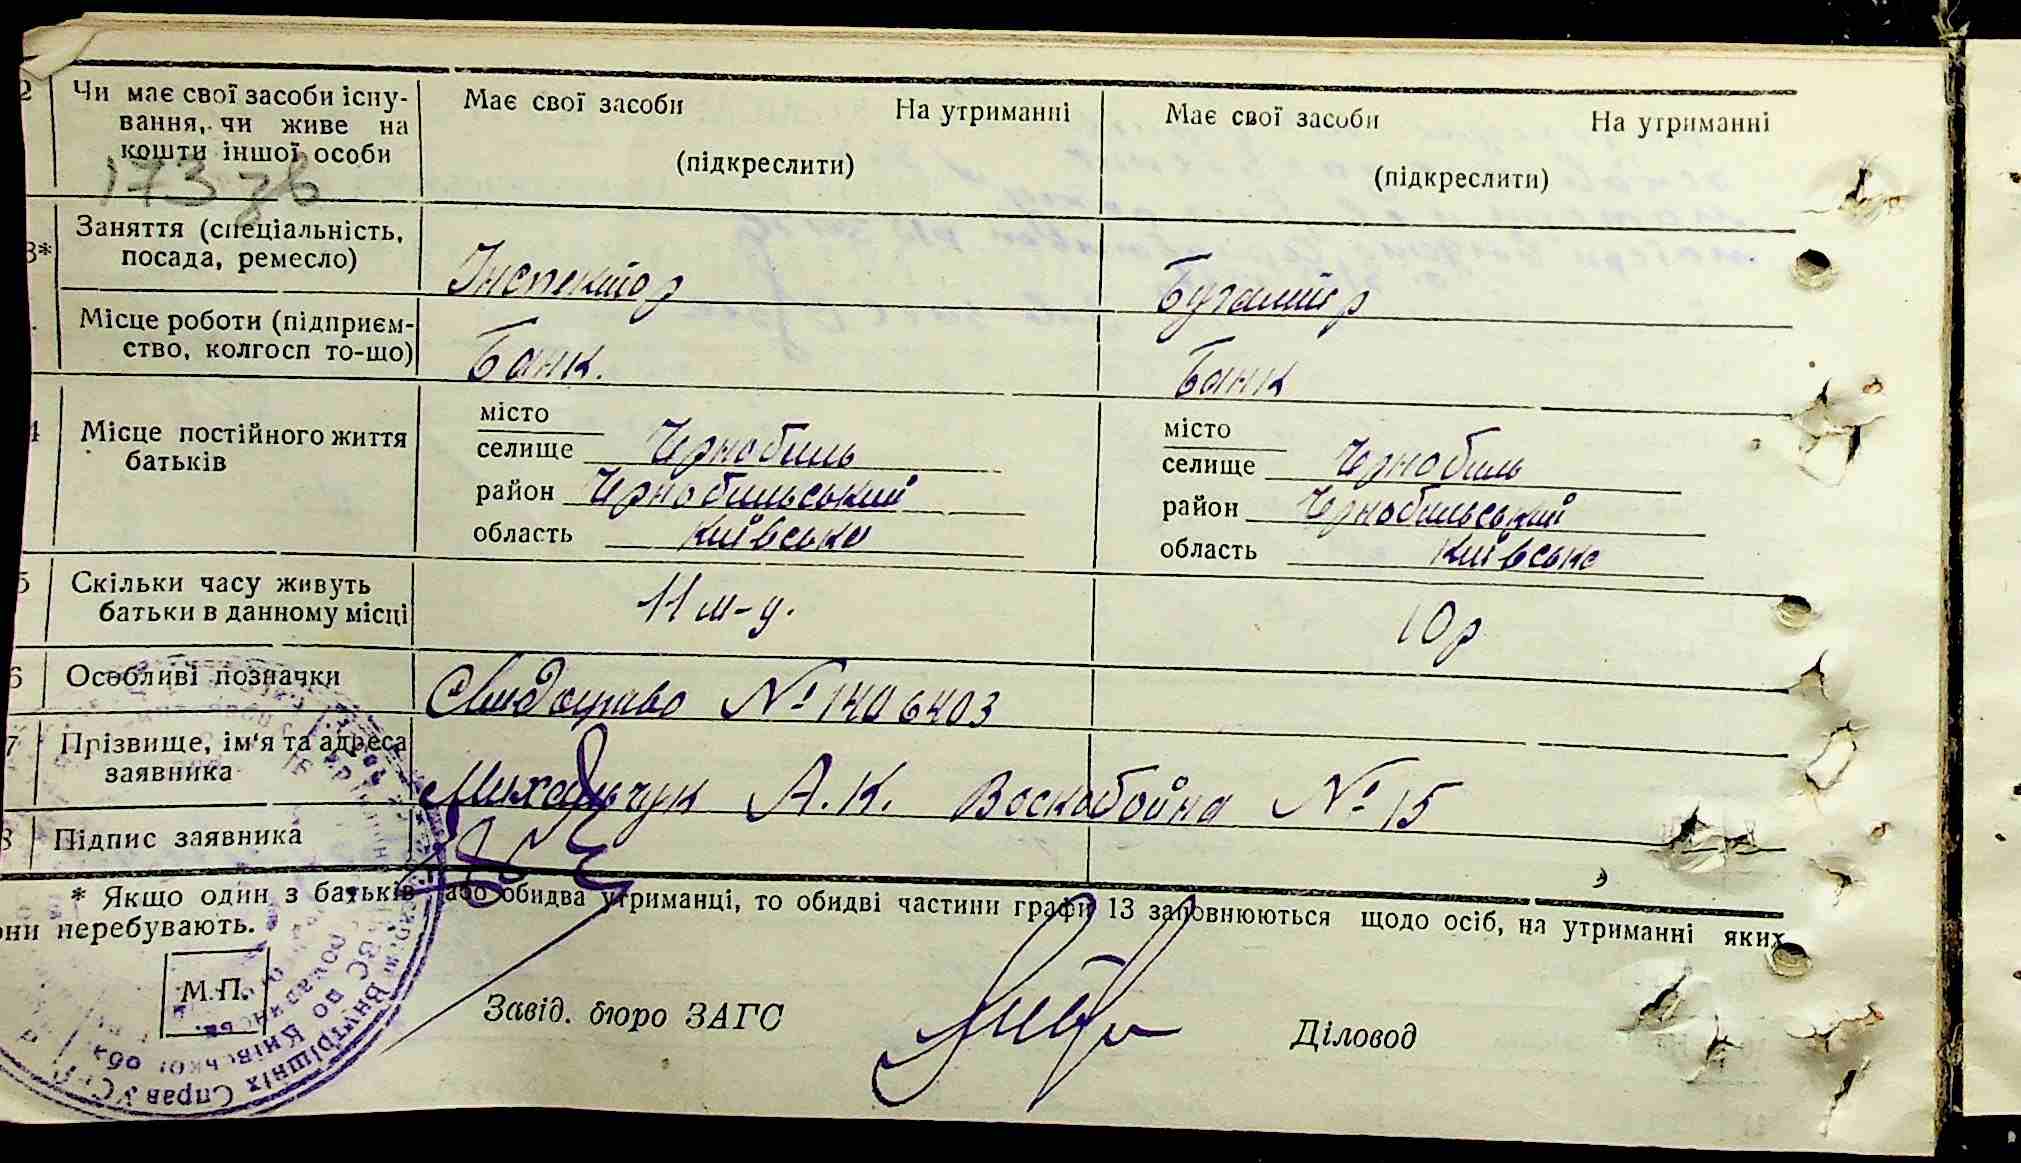 2 Чи має свої засоби існу- Має свої засоби На утриманні Має свої засоби На утриманні
вання, чи живе на
кошти іншої особи (підкреслити) (підкреслити)
173 зв
3* Заняття (спеціальність,
посада, ремесло) Інспектор Бугалтір
Місце роботи (підприєм-
ство, колгосп то-що) Банк. Банк
4 Місце постійного життя місто місто
батьків селище Чернобиль селище Чернобиль
район Чернобильський район Чернобильський
область Київська область Київська
5 Скільки часу живуть
батьки в данному місці 11 м-у. 10 р
6 Особливі позначки Свидоцтво № 1406403
7 Прізвище, ім'я та адреса
заявника Михальчук А. К. Воскобойна № 15
8 Підпис заявника
* Якщо один з батьків або обидва утриманці, то обидві частини графи 13 заповнюються щодо осіб, на утриманні яких
они перебувають.
М.П.
Завід. бюро ЗАГС Діловод
Внутрішніх Справ УСРР
по Київської обл